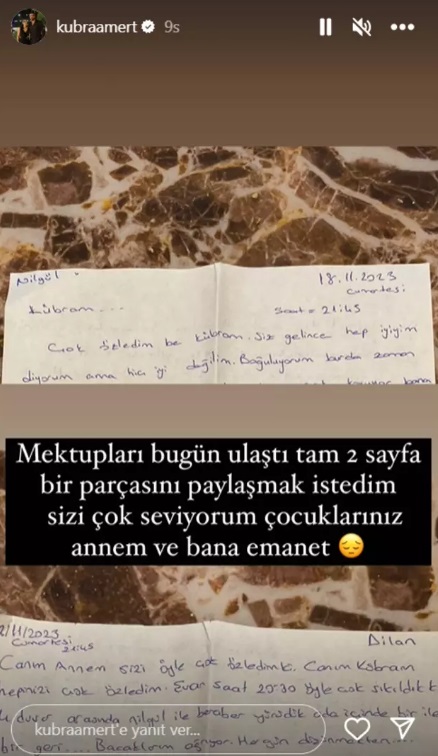 kubraamert 9s
Nilgül 18.11.2023
Cumartesi
Kübram... Saat = 21:45
Çok özledim be Kübram. Siz gelince hep iyiyim
diyorum ama hiç iyi değilim. Boğuluyorum burda zaman
bana
Mektupları bugün ulaştı tam 2 sayfa
bir parçasını paylaşmak istedim
sizi çok seviyorum çocuklarınız
annem ve bana emanet 😔
2/11/2023 Dilan
Cumartesi
21:45
Canım Annem sizi öyle çok özledimki. Canım Kübram
hepnizi çok özledim. Evan saat 20:30 öyle çok sıkıldık k
duvar arasında nilgül ile beraber yürüdük oda içinde bir ile
kubraamert'e yanıt ver...
bir geri.... Bacaklarım ağrıyor. Hergün